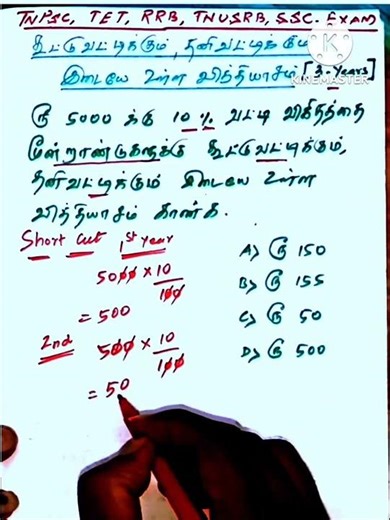 TNPSC, TET, RRB, TNUSRB, SSC. EXAM
கூட்டுவட்டிக்கும், தனிவட்டிக்கும்
இடையே உள்ள வித்தியாசம் [3-Years]
KINEMASTER
ரூ 5000 க்கு 10% வட்டி விகிதத்தை
மூன்றாண்டுகளுக்கு கூட்டுவட்டிக்கும்,
தனிவட்டிக்கும் இடையே உள்ள
வித்தியாசம் காண்க.
Short Cut 1st Year
5000 × 10/100
= 500
2nd 500 × 10/100
= 50
A) ரூ 150
B) ரூ 155
C) ரூ 50
D) ரூ 500